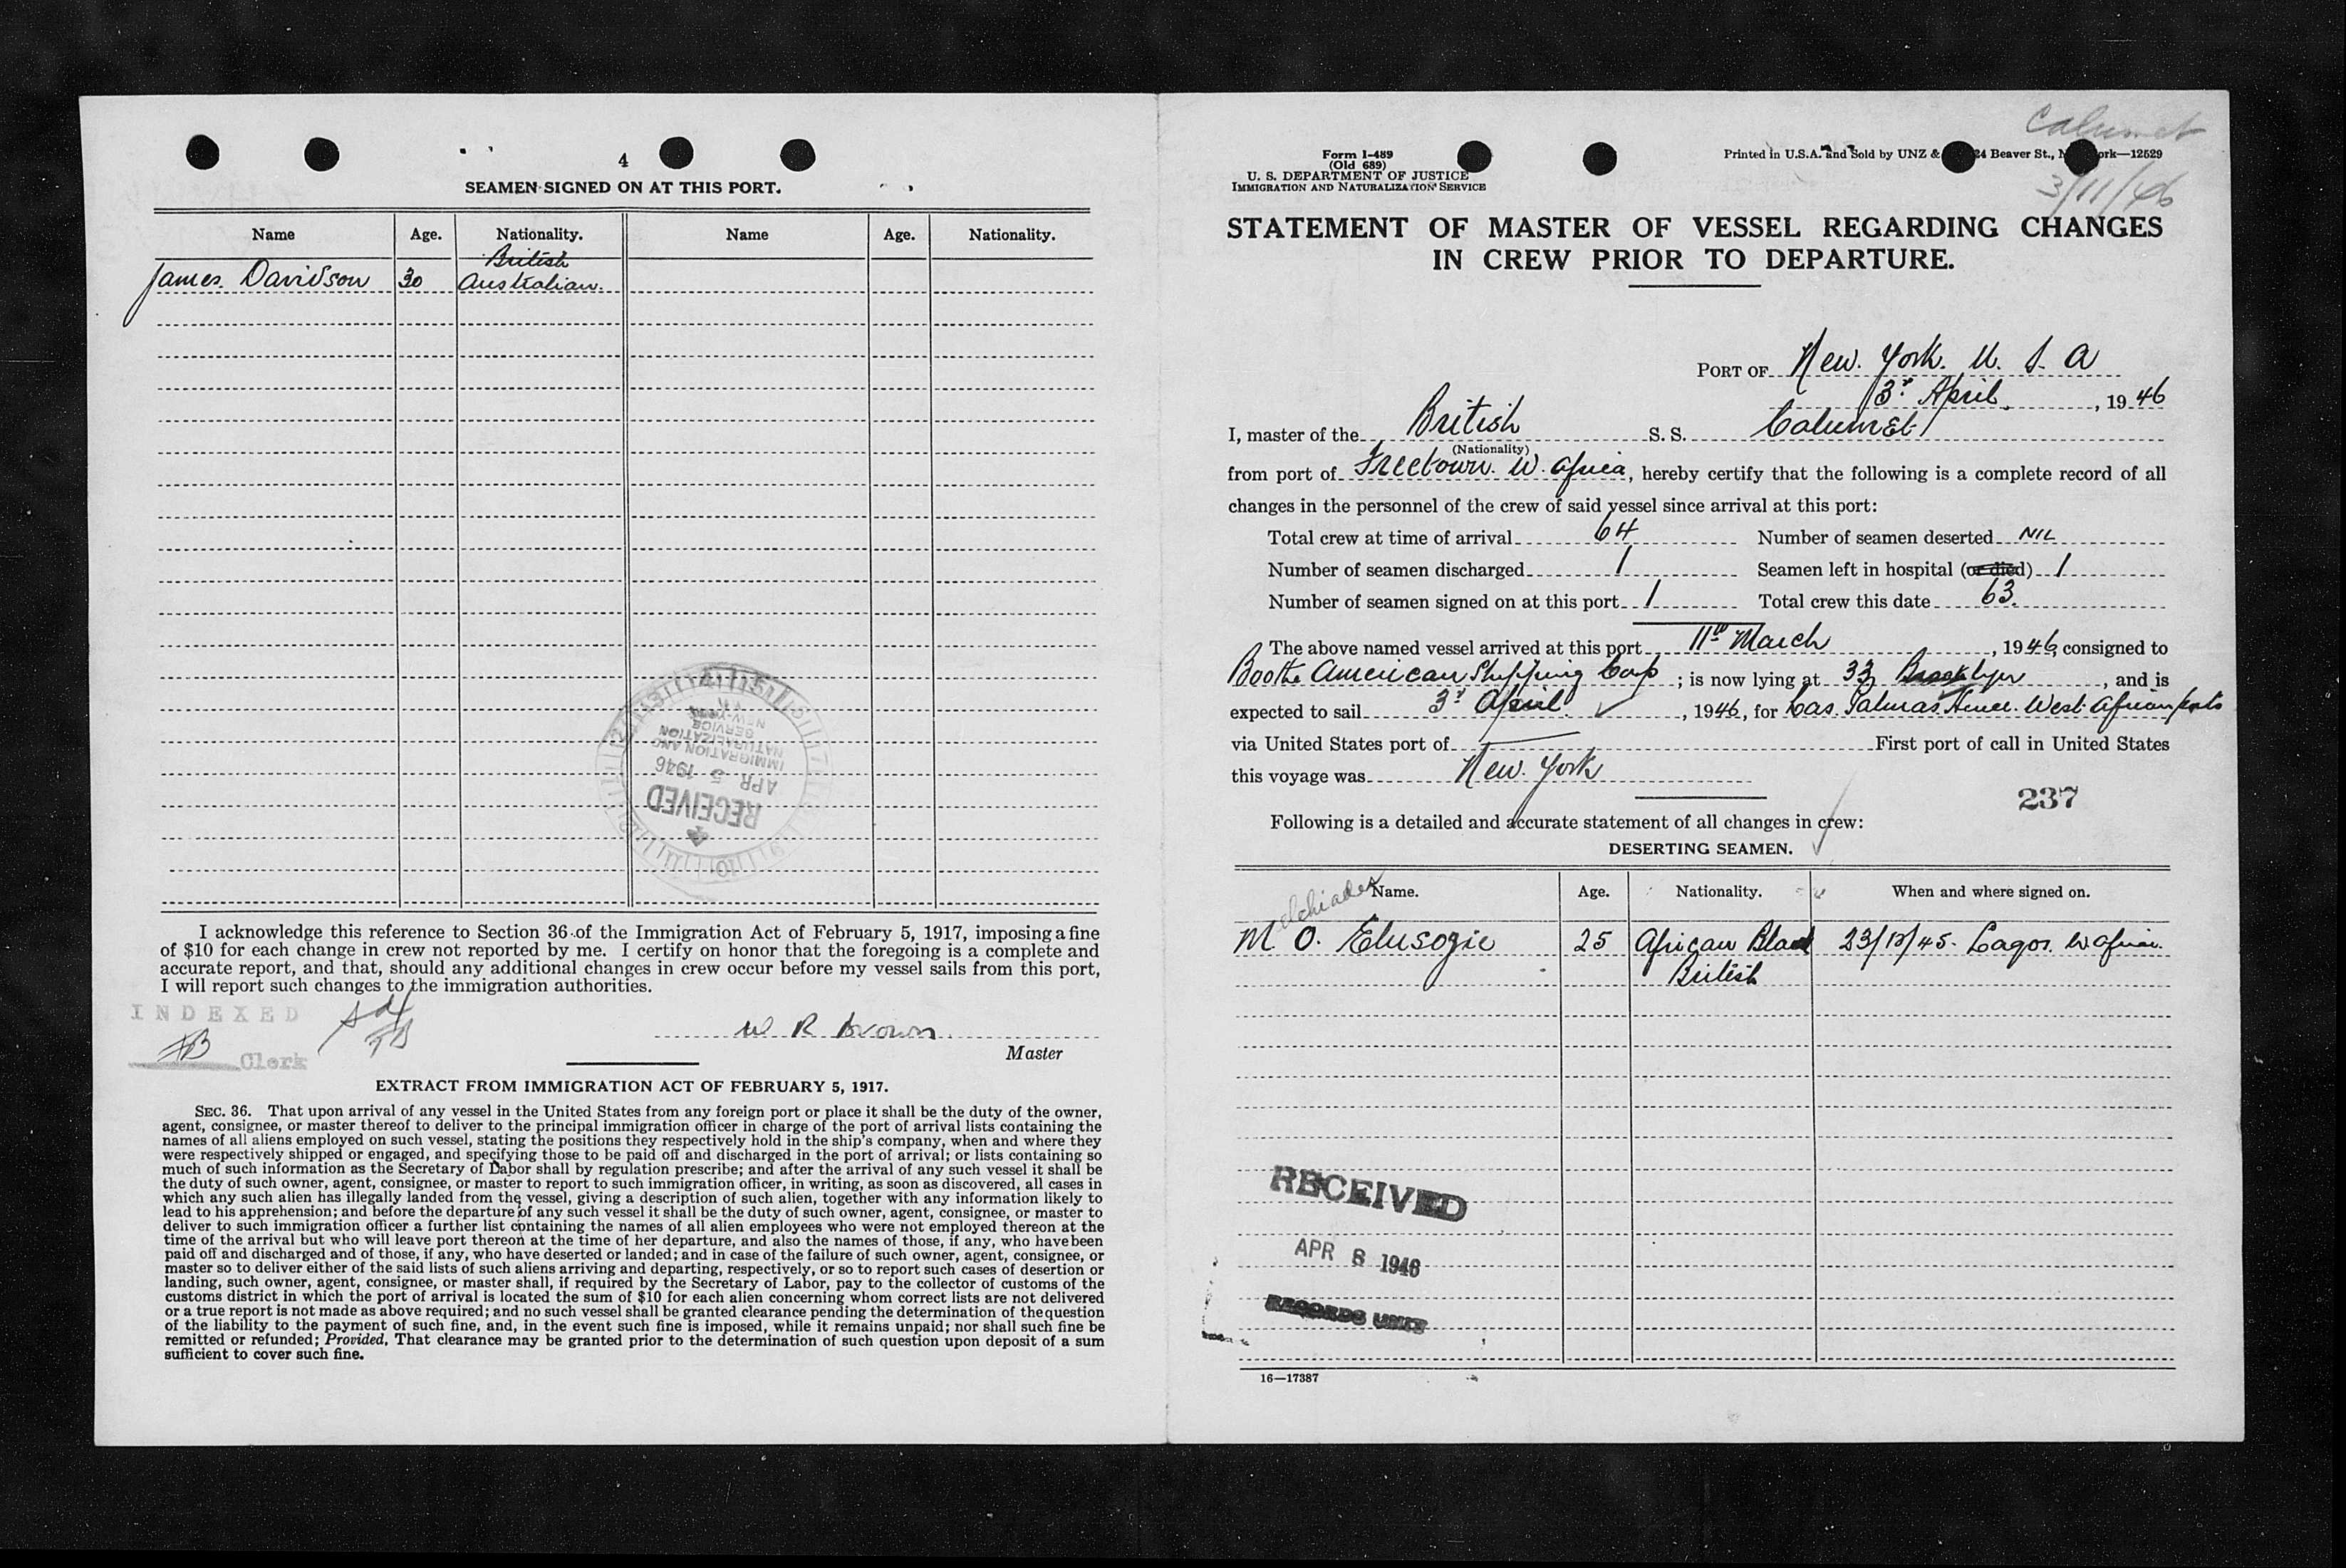 4
SEAMEN SIGNED ON AT THIS PORT.
Name Age. Nationality. Name Age. Nationality.
British
James Davidson 30 Australian.
RECEIVED
APR 5 1946
IMMIGRATION AND
NATURALIZATION
SERVICE
NEW-YORK
I acknowledge this reference to Section 36 of the Immigration Act of February 5, 1917, imposing a fine
of $10 for each change in crew not reported by me. I certify on honor that the foregoing is a complete and
accurate report, and that, should any additional changes in crew occur before my vessel sails from this port,
I will report such changes to the immigration authorities.
INDEXED
Clerk
W R Brown
Master
EXTRACT FROM IMMIGRATION ACT OF FEBRUARY 5, 1917.
SEC. 36. That upon arrival of any vessel in the United States from any foreign port or place it shall be the duty of the owner,
agent, consignee, or master thereof to deliver to the principal immigration officer in charge of the port of arrival lists containing the
names of all aliens employed on such vessel, stating the positions they respectively hold in the ship's company, when and where they
were respectively shipped or engaged, and specifying those to be paid off and discharged in the port of arrival; or lists containing so
much of such information as the Secretary of Labor shall by regulation prescribe; and after the arrival of any such vessel it shall be
the duty of such owner, agent, consignee, or master to report to such immigration officer, in writing, as soon as discovered, all cases in
which any such alien has illegally landed from the vessel, giving a description of such alien, together with any information likely to
lead to his apprehension; and before the departure of any such vessel it shall be the duty of such owner, agent, consignee, or master to
deliver to such immigration officer a further list containing the names of all alien employees who were not employed thereon at the
time of the arrival but who will leave port thereon at the time of her departure, and also the names of those, if any, who have been
paid off and discharged and of those, if any, who have deserted or landed; and in case of the failure of such owner, agent, consignee, or
master so to deliver either of the said lists of such aliens arriving and departing, respectively, or so to report such cases of desertion or
landing, such owner, agent, consignee, or master shall, if required by the Secretary of Labor, pay to the collector of customs of the
customs district in which the port of arrival is located the sum of $10 for each alien concerning whom correct lists are not delivered
or a true report is not made as above required; and no such vessel shall be granted clearance pending the determination of the question
of the liability to the payment of such fine, and, in the event such fine is imposed, while it remains unpaid; nor shall such fine be
remitted or refunded; Provided, That clearance may be granted prior to the determination of such question upon deposit of a sum
sufficient to cover such fine.
Calumet
3/11/46
Form I-489
(Old 689)
U. S. DEPARTMENT OF JUSTICE
IMMIGRATION AND NATURALIZATION SERVICE
Printed in U.S.A. and Sold by UNZ & 24 Beaver St., N ork—12529
STATEMENT OF MASTER OF VESSEL REGARDING CHANGES
IN CREW PRIOR TO DEPARTURE.
PORT OF New York. U. S. A
3rd April, 1946
I, master of the British S. S. Calumet
(Nationality)
from port of Freetown. W. Africa, hereby certify that the following is a complete record of all
changes in the personnel of the crew of said vessel since arrival at this port:
Total crew at time of arrival 64 Number of seamen deserted NIL
Number of seamen discharged 1 Seamen left in hospital (or died) 1
Number of seamen signed on at this port 1 Total crew this date 63.
The above named vessel arrived at this port 11th March, 1946, consigned to
Booth American Shipping Corp; is now lying at 33 Brooklyn, and is
expected to sail 3rd April, 1946, for Las Palmas thence West African ports
via United States port of First port of call in United States
this voyage was New York
237
Following is a detailed and accurate statement of all changes in crew:
DESERTING SEAMEN.
Name. Age. Nationality. When and where signed on.
M. O. Elusogie 25 African Black 23/12/45. Lagos. W Africa.
British
RECEIVED
APR 8 1946
RECORDS UNIT
16—17387